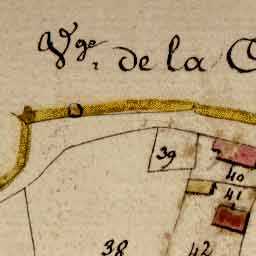 Vge. de la C
39
40
41
38
42